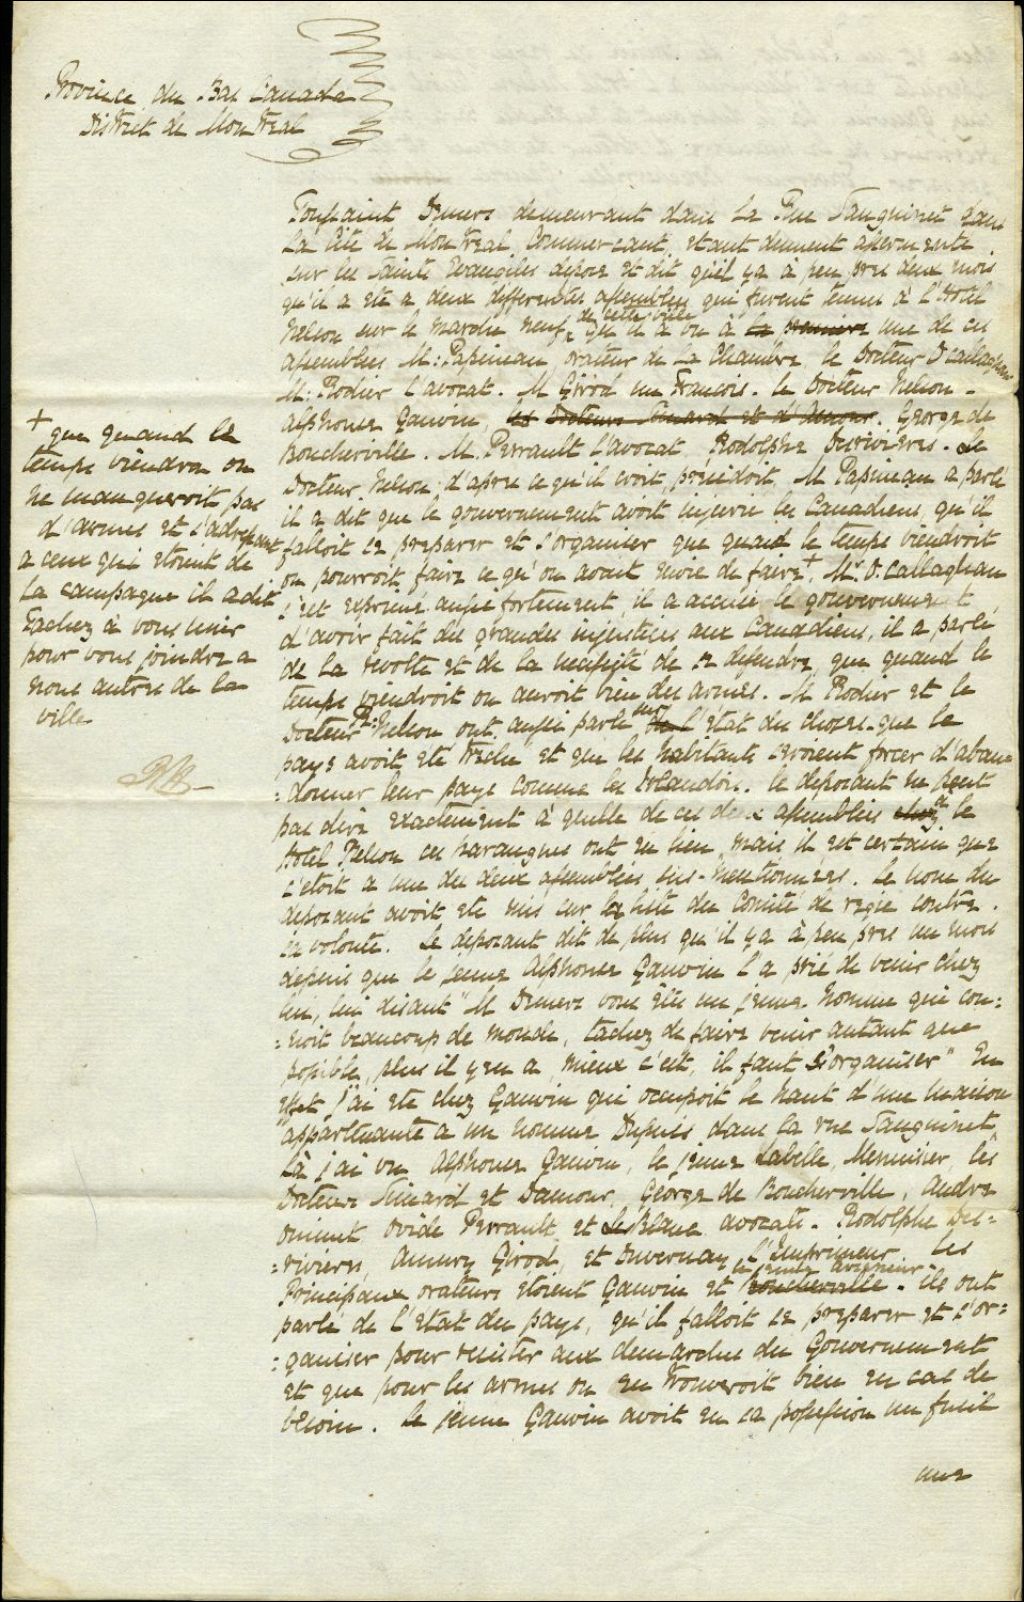 Province du Bas Canada
District de Montreal
Toussaint Demers demeurant dans la Rue Sanguinet dans
la Cité de Montreal Commercant, etant dument assermenté
sur les Saints Evangiles depose et dit qu'il y a à peu pres deux mois
qu'il a eté a deux differentes assemblées qui furent tenues à l'Hotel
Nelson sur le marché neuf de cette ville qu'il a vu à la premiere une de ces
assemblées M: Papineau orateur de la Chambre le Docteur O'Callaghan
M: Rodier l'avocat. M Girod un Francois. le Docteur Nelson -
Alphonse Gauvin, les Docteurs Simard et d'Amour. George de
Boucherville. M. Perrault l'avocat Rodolphe Desrivieres. Le
Docteur Nelson, d'apres ce qu'il croit, présidoit. M Papineau a parlé
il a dit que le gouvernement avoit injurié les Canadiens, qu'il
falloit se preparer et s'organiser que quand le temps viendroit
on pourroit faire ce qu'on avoit envie de faire + Mr O.Callaghan
s'est exprimé aussi fortement, il a accusé le gouvernement
d'avoir fait des grandes injustices aux Canadiens, il a parlé
de la revolte et de la necessité de se defendre, que quand le
temps viendroit on auroit bien des armes. M Rodier et le
Docteur R: Nelson ont aussi parlé sur de l'état des choses que le
pays avoit eté et que les habitants seroient forcer d'aban
= donner leur pays comme les Irlandois. le deposant ne peut
pas dire exactement à quelle de ces deux assemblées chez à le
Hotel Nelson ces harangues ont eu lieu, mais il est certain que
c'etoit a une des deux assemblées sus-mentionnees. Le nom du
deposant avoit eté mis sur la liste du Comité de regie contre
sa volonté. Le deposant dit de plus qu'il y a à peu près un mois
depuis que le jeune Alphonse Gauvin l'a prié de venir chez
lui, lui disant "M Demers vous êtes un jeune homme qui con:
= noit beaucoup de monde, tachez de faire venir autant que
possible, plus il y en a, mieux c'est, il faut s'organiser" En
effet j'ai eté chez Gauvin qui occupoit le haut d'une maison
appartenante a un nommé Dupuis dans la rue Sanguinet,
Là j'ai vu Alphonse Gauvin, le jeune Labelle, Menuisier, les
Docteurs Simard et Damour, George de Boucherville, André
Ouimet Ovide Perrault et LeBlanc avocats. Rodolphe Des=
= rivieres, Amury Girod, et Duvernay l'Imprimeur. Les
Principaux orateurs etoient Gauvin et Boucherville. ils ont
parlé de l'etat du pays, qu'il falloit se preparer et s'or=
= ganiser pour resister aux demarches du Gouvernement
et que pour les armes on en trouveroit bien en cas de
besoin. Le jeune Gauvin avoit en sa possession un fusil
une
+ que quand le
temps viendra on
ne manqueroit pas
d'armes et s'adressant
a ceux qui etoient de
la campagne il a dit
Tachez à vous unir
pour vous joindre a
nous autres de la
ville